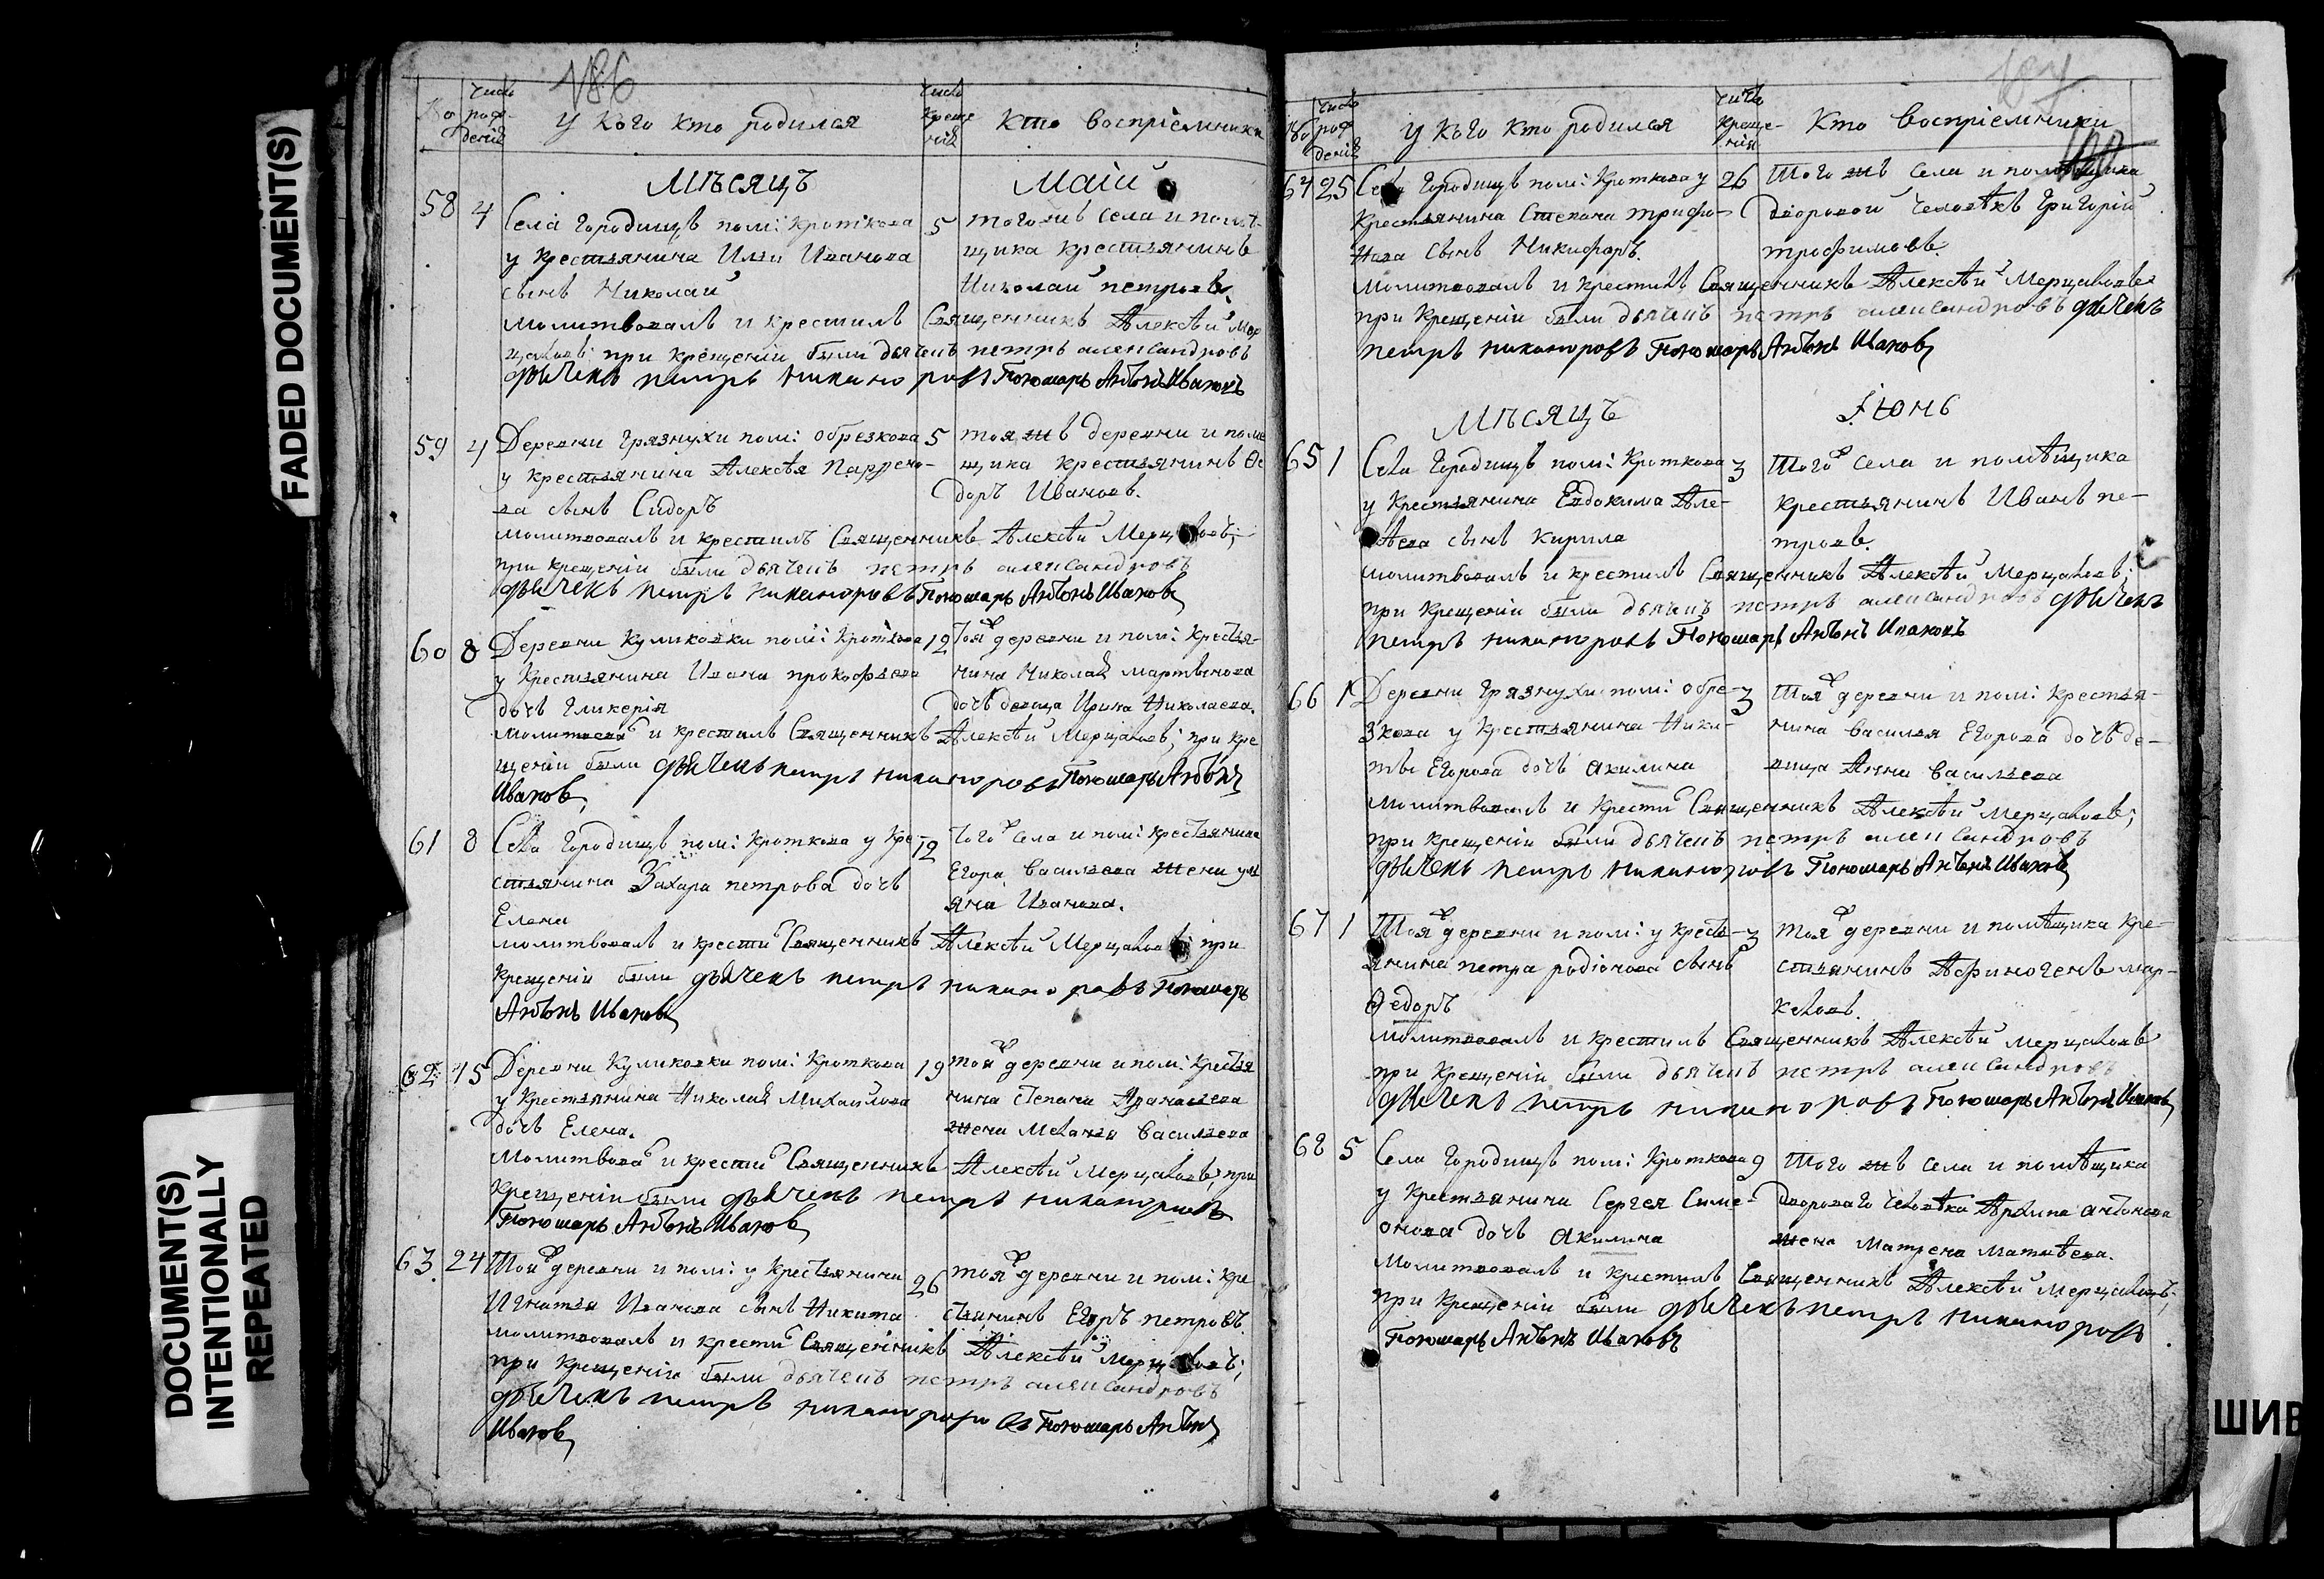 FADED DOCUMENT(S)
DOCUMENT(S)
INTENTIONALLY
REPEATED
186
Число рождений
У кого кто родился
Число крещений
Кто восприемники
Мѣсяцъ Маій
58 4 Села Городищъ пом: Кроткова 5 тогожъ села и помѣ-
у крестьянина Ильи Иванова щика крестьянинъ
сынъ Николай Николай петровъ.
молитвовалъ и крестилъ Священникъ Алексѣй Мер
цаловъ; при крещеніи были дьячекъ петръ александровъ
дьячекъ петръ никаноровъ Пономарь Антонъ Ивановъ
59 4 Деревни Грязнухи пом: Обрезкова 5 тояжъ деревни и поме
у крестьянина Алексѣя Парфено- щика крестьянинъ Ѳе
ва сынъ Сидоръ доръ Ивановъ.
молитвовалъ и крестилъ Священникъ Алексѣй Мерцаловъ;
при крещеніи были дьячекъ петръ александровъ
дьячекъ петръ никаноровъ Пономарь Антонъ Ивановъ
60 8 Деревни Куликовки пом: Кроткова 12 тояж деревни и пом: крестья-
у крестьянина Ивана прокофьева нина Николая мартынова
дочь Гликерія дочь девица Ирина Николаева.
молитвова и крестилъ Священникъ Алексѣй Мерцаловъ; при кре
щеніи были дьячекъ петръ никаноровъ Пономарь Антонъ
Ивановъ
61 8 Села Городищъ пом: Кроткова у кре- 12 тогож села и пом: крестьянина
стьянина Захара петрова дочь Егора Васильева жена уль
Елена яна Иванова.
молитвовалъ и крести Священникъ Алексѣй Мерцаловъ при
крещеніи были дьячекъ петръ никаноровъ Пономарь
Антонъ Ивановъ
62 15 Деревни Куликовки пом: Кроткова 19 тояж деревни и пом: крестья
у крестьянина Николая Михайлова нина Степана Афанасьева
дочь Елена. жена Меланья Васильева
молитвова и крести Священникъ Алексѣй Мерцаловъ, при
крещеніи были дьячекъ петръ никаноровъ
Пономарь Антонъ Ивановъ
63. 24 Тояж деревни и пом: у крестьянина 26 тояж деревни и пом: кре
Игнатья Иванова сынъ Никита стьянинъ Егоръ петровъ.
молитвовалъ и крести Священникъ Алексѣй Мерцаловъ;
при крещеніи были дьячекъ петръ александровъ
дьячекъ петръ никаноровъ Пономарь Антонъ
Ивановъ
187
Число рождений
У кого кто родился
Число крещения
Кто восприемники
64 25 Села Городищъ пом: Кроткова у 26 Того жъ села и помѣщика
крестьянина Степана трифо- дворовой человѣкъ Григорій
нова сынъ Никифоръ. трофимовъ.
молитвовалъ и крестилъ Священникъ Алексѣй Мерцаловъ
при крещеніи были дьячекъ петръ александровъ дьячекъ
петръ никаноровъ Пономарь Антонъ Ивановъ
Мѣсяцъ Іюнь
65 1 Села Городищъ пом: Кроткова 3 Тогож села и помѣщика
у крестьянина Евдокима Але- крестьянинъ Иванъ пе-
ѣева сынъ Кирила тровъ.
молитвовалъ и крестилъ Священникъ Алексѣй Мерцаловъ;
при крещеніи были дьячекъ петръ александровъ дьячекъ
петръ никаноровъ Пономарь Антонъ Ивановъ
66 1 Деревни Грязнухи пом: Обре- 3 Тояж деревни и пом: крестья-
зкова у крестьянина Ники- нина Василья Егорова дочь де-
ты Егорова дочь Акилина вица Анна Васильева
молитвовалъ и крести Священникъ Алексѣй Мерцаловъ;
при крещеніи были дьячекъ петръ александровъ
дьячекъ петръ никаноровъ Пономарь Антонъ Ивановъ
67 1 Тояж деревни и пом: у кресть- 3 тояж деревни и помѣщика кре-
янина петра родіонова сынъ стьянинъ Афиногенъ мар-
Ѳедоръ келовъ.
молитвовалъ и крестилъ Священникъ Алексѣй Мерцаловъ
при крещеніи были дьячекъ петръ александровъ
дьячекъ петръ никаноровъ Пономарь Антонъ Ивановъ
68 5 Села Городищъ пом: Кроткова 9 Того жъ села и помѣщика
у крестьянина Сергея Симе- двороваго человѣка Архипа антонова
онова дочь Акилина жена Матрена Матвѣева.
молитвовалъ и крестилъ Священникъ Алексѣй Мерцаловъ;
при крещеніи были дьячекъ петръ никаноровъ
Пономарь Антонъ Ивановъ
ШИВ